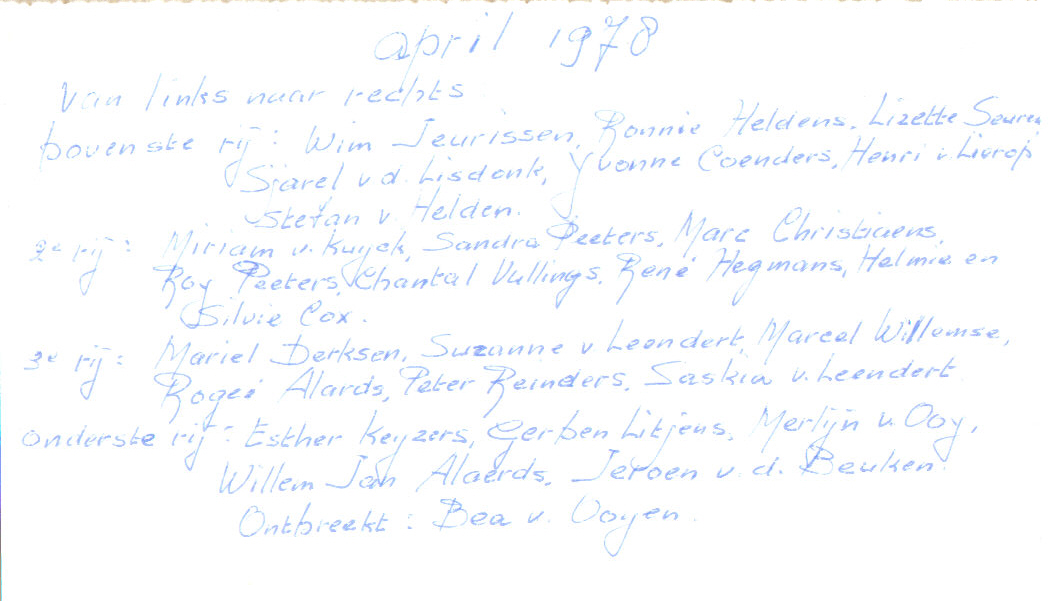 april 1978
Van links naar rechts
bovenste rij: Wim Jeurissen, Ronnie Heldens, Lizette Seuren
Sjarel v.d. Lisdonk, Yvonne Coenders, Henri v. Lierop
Stefan v. Helden.
2e rij: Miriam v. Kuyck, Sandra Peeters, Marc Christiaens,
Roy Peeters, Chantal Vullings, René Hegmans, Helmie en
Silvie Cox.
3e rij: Mariel Derksen, Suzanne v Leendert, Marcel Willemse,
Roger Alards, Peter Reinders, Saskia v. Leendert
onderste rij: Esther Keyzers, Gerben Litjens, Merlijn v. Ooy,
Willem Jan Alaerds, Jeroen v.d. Beuken.
Ontbreekt: Bea v. Ooyen.